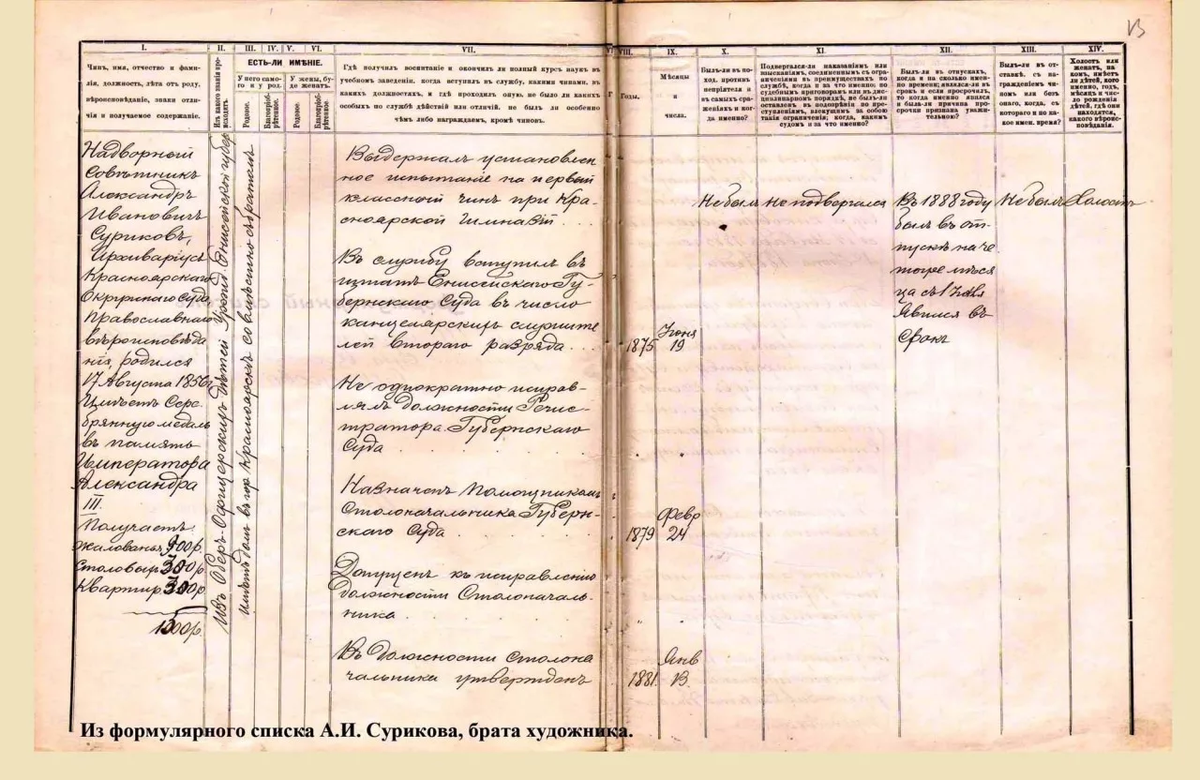 13
I.
II.
III.
IV.
V.
VI.
VII.
VIII.
IX.
X.
XI.
XII.
XIII.
XIV.
Чинъ, имя, отчество и фами-
лія, должность, лѣта отъ роду,
вѣроисповѣданіе, знаки отли-
чія и получаемое содержаніе.
Изъ какого званія про-
исходитъ.
ЕСТЬ-ЛИ ИМѢНІЕ.
У него само-
го и у род.
У жены, бу-
де женатъ.
Родовое.
Благопріоб-
рѣтенное.
Родовое.
Благопріоб-
рѣтенное.
Гдѣ получилъ воспитаніе и окончилъ ли полный курсъ наукъ въ
учебномъ заведеніи, когда вступилъ въ службу, какими чинами, въ
какихъ должностяхъ, и гдѣ проходилъ оную, не было ли какихъ
особыхъ по службѣ дѣйствій или отличій, не былъ ли особенно
чѣмъ либо награждаемъ, кромѣ чиновъ.
Годы.
Мѣсяцы
и
числа.
Былъ-ли въ по-
ход. противъ
непріятеля и
въ самыхъ сра-
женіяхъ и ког-
да именно?
Подвергался-ли наказаніямъ или
взысканіямъ, соединеннымъ съ огра-
ниченіями въ преимуществахъ по
службѣ, когда и за что именно; по
судебнымъ приговорамъ или въ дис-
циплинарномъ порядкѣ; не былъ-ли
оставленъ въ подозрѣніи по пре-
ступленіямъ, влекущимъ за собою
такія ограниченія; когда, какимъ
судомъ и за что именно?
Былъ-ли въ отпускахъ,
когда и на сколько имен-
но времени; являлся-ли въ
срокъ и если просрочилъ,
то когда именно явился
и была-ли причина про-
срочки признана уважи-
тельною?
Былъ-ли въ от-
ставкѣ, съ на-
гражденіемъ чи-
номъ или безъ
онаго, когда, съ
котораго и по ка-
кое имен. время?
Холостъ или
женатъ, на
комъ, имѣетъ
ли дѣтей, кого
именно, годъ,
мѣсяцъ и чи-
сло рожденія
дѣтей, гдѣ они
находятся,
какого вѣроис-
повѣданія.
Надворный
Совѣтникъ
Александръ
Ивановичъ
Суриковъ,
Архиваріусъ
Красноярскаго
Окружнаго Суда
Православнаго
вѣроисповѣда
нія, родился
17 Августа 1856 г.
Имѣетъ Сере-
брянную медаль
въ память
Императора
Александра
III.
Получаетъ:
жалованья 900 р.
Столовых 300 р.
Квартир 300 р.
1500 р.
Изъ Оберъ Офицерскихъ Дѣтей Урожд. Енисейской губер
имѣетъ домъ въ гор. Красноярскѣ совмѣстно съ братомъ
Выдержалъ установлен
ное испытаніе на первый
классный чинъ при Кра-
сноярской Гимназіи.
Въ службу вступилъ въ
штатъ Енисейскаго Гу-
бернскаго Суда въ число
канцелярскихъ служите
лей втораго разряда . . .
1875
Іюня
19
Не однократно исправ-
лялъ должности Регис-
тратора Губернскаго
Суда
Назначенъ Помощникомъ
Столоначальника Губерн-
скаго Суда
1879
Февр
24
Допущенъ къ исправленію
должности Столоначаль-
ника
Въ должности Столона
чальника утвержденъ
1881
Янв
13.
Не былъ
Не подвергался
Въ 1888 году
былъ въ от-
пускѣ на че
тыре мѣся
ца съ 1 Мая
Явился въ
срокъ
Не былъ
Холостъ
Из формулярного списка А.И. Сурикова, брата художника.